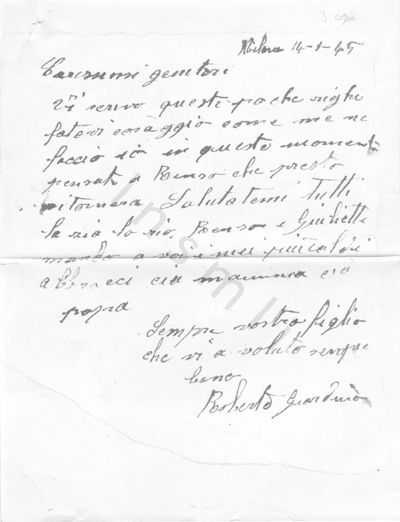 3 copia
Milano 14-1-45
Carissimi genitori
Vi scrivo queste poche righe
fatevi coraggio come me ne
faccio io in questo momento
pensate a Renzo che presto
ritornera Salutatemi tutti
la zia lo zio, Renzo e Giulietti
mando a voi i miei più caldi
abbracci cia mamma cia
papa
Sempre vostro figlio
che vi a voluto sempre
bene
Roberto Giardino
Insmli